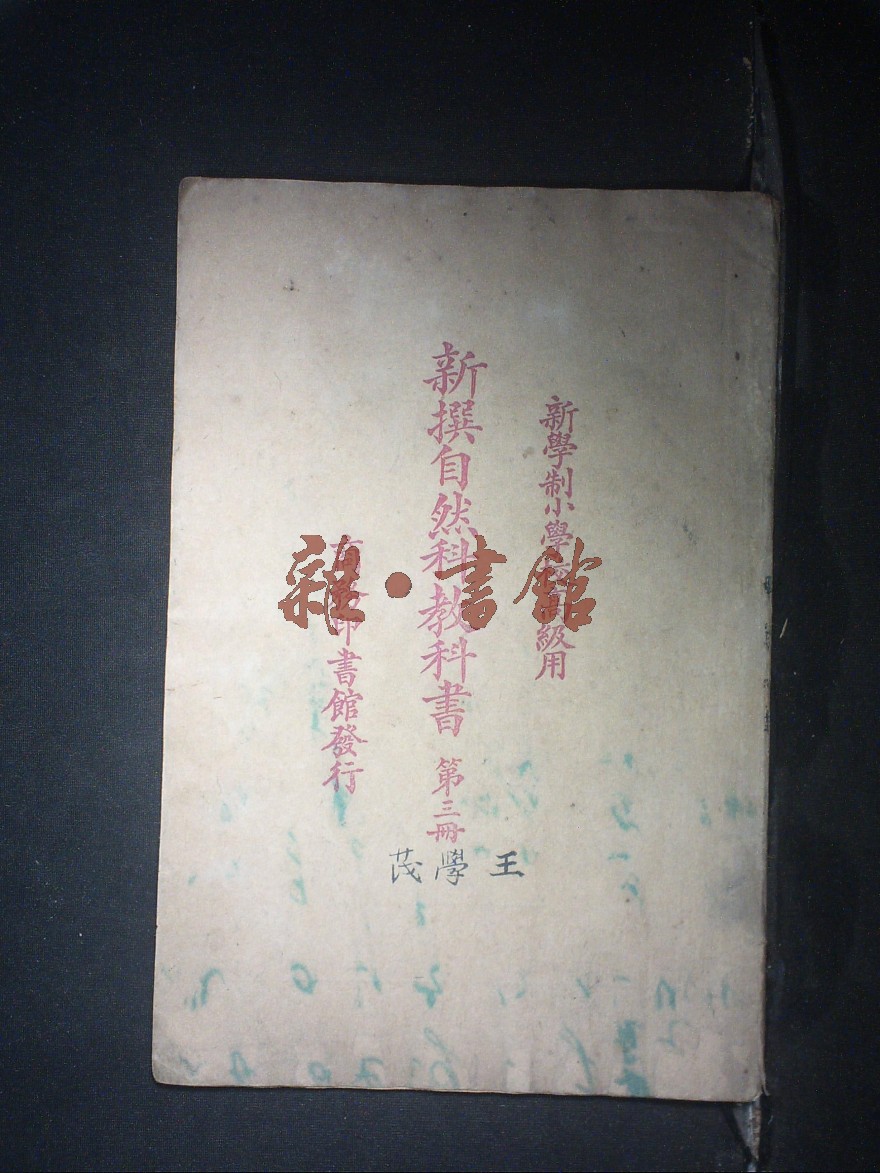 新學制小學校高級用
新撰自然科教科書 第三冊
商務印書館發行
王學茂
雜·書館